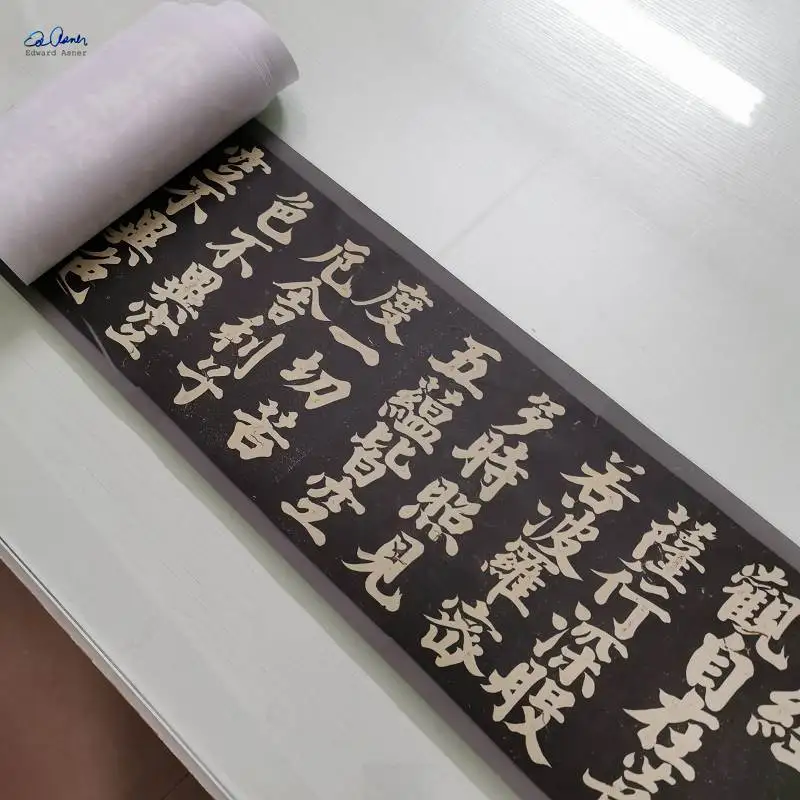 Ed Asner
Edward Asner
經
觀自在菩
薩行深般
若波羅密
多時照見
五蘊皆空
度一切苦
厄舍利子
色不異空
空不異色